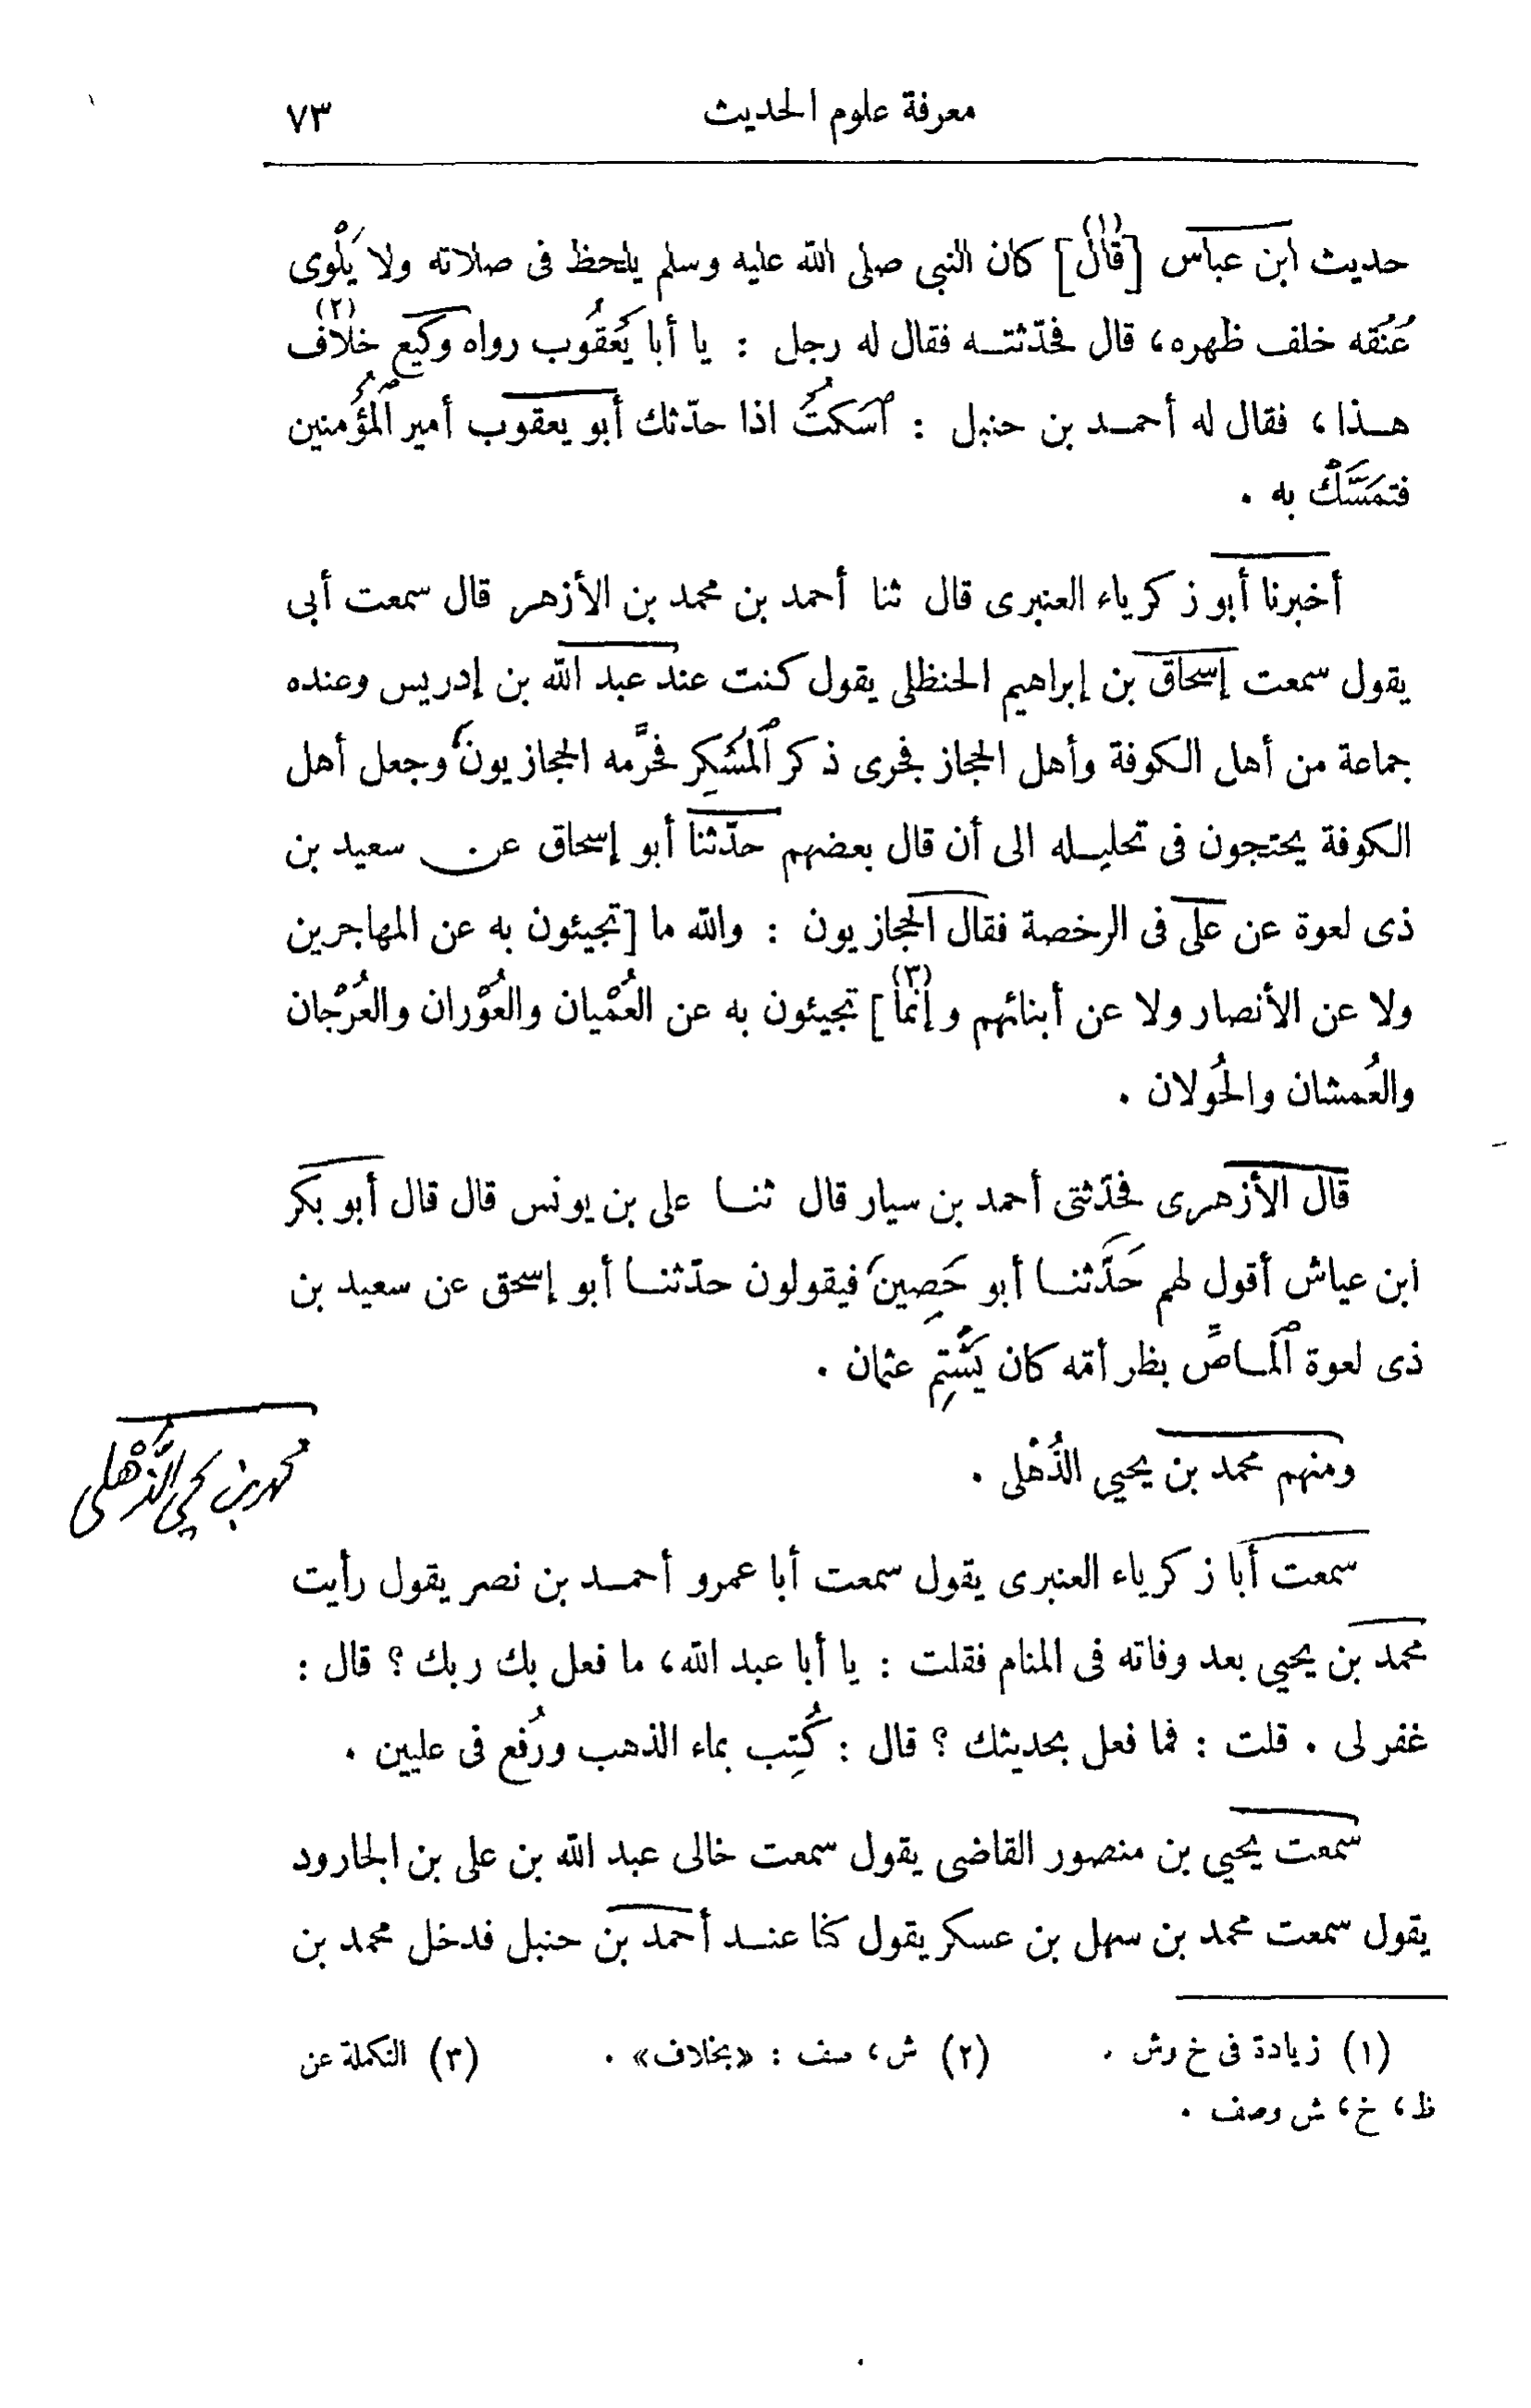 معرفة علوم الحديث ٧٣
حديث ابن عباس [قال](١) كان النبى صلى الله عليه وسلم يلحظ فى صلاته ولا يَلْوى
عُنُقه خلف ظهره، قال فحدّثتــه فقال له رجل : يا أبا يَعقُوب رواه وكيع خلاف(٢)
هــذا ، فقال له أحمــد بن حنبل : ٱسكتُ اذا حدّثك أبو يعقوب أمير ٱلمُؤمنين
فتمَسَّكْ به .
أخبرنا أبو زكرياء العنبرى قال ثنا أحمد بن محمد بن الأزهر قال سمعت أبى
يقول سمعت إسحاق بن إبراهيم الحنظلى يقول كنت عند عبد الله بن إدريس وعنده
جماعة من أهل الكوفة وأهل الحجاز فجرى ذكر ٱلمُسْكِر فحرَّمه الحجازيون َ وجعل أهل
الكوفة يحتجون فى تحليــله الى أن قال بعضهم حدّثنا أبو إسحاق عن سعيد بن
ذى لعوة عن على فى الرخصة فقال الحجازيون : والله ما [تجيئون به عن المهاجرين
ولا عن الأنصار ولا عن أبنائهم وإنما](٣) تجيئون به عن العُمْيان والعُوْران والعُرْجان
والعُمشان والحُولان .
قال الأزهرى فحدّثنى أحمد بن سيار قال ثنــا على بن يونس قال قال أبو بكر
ابن عياش أقول لهم حَدَّثنــا أبو حَصِينَ فيقولون حدّثنــا أبو إسحق عن سعيد بن
ذى لعوة ٱلمــاصِّ بظر أمّه كان يَشْتِم عثمان .
ومنهم محمد بن يحيى الذُهْلى .
محمد بن يحيى الذُّهْلى
سمعت أبا زكرياء العنبرى يقول سمعت أبا عمرو أحمــد بن نصر يقول رأيت
محمد بن يحيى بعد وفاته فى المنام فقلت : يا أبا عبد الله، ما فعل بك ربك ؟ قال :
غفر لى . قلت : فما فعل بحديثك ؟ قال : كُتِب بماء الذهب ورُفع فى عليين .
سمعت يحيى بن منصور القاضى يقول سمعت خالى عبد الله بن على بن الجارود
يقول سمعت محمد بن سهل بن عسكر يقول كنا عنــد أحمد بن حنبل فدخل محمد بن
(١) زيادة فى خ وش . (٢) ش، صف : «بخلاف» . (٣) التكملة عن
ظ، خ، ش وصف .